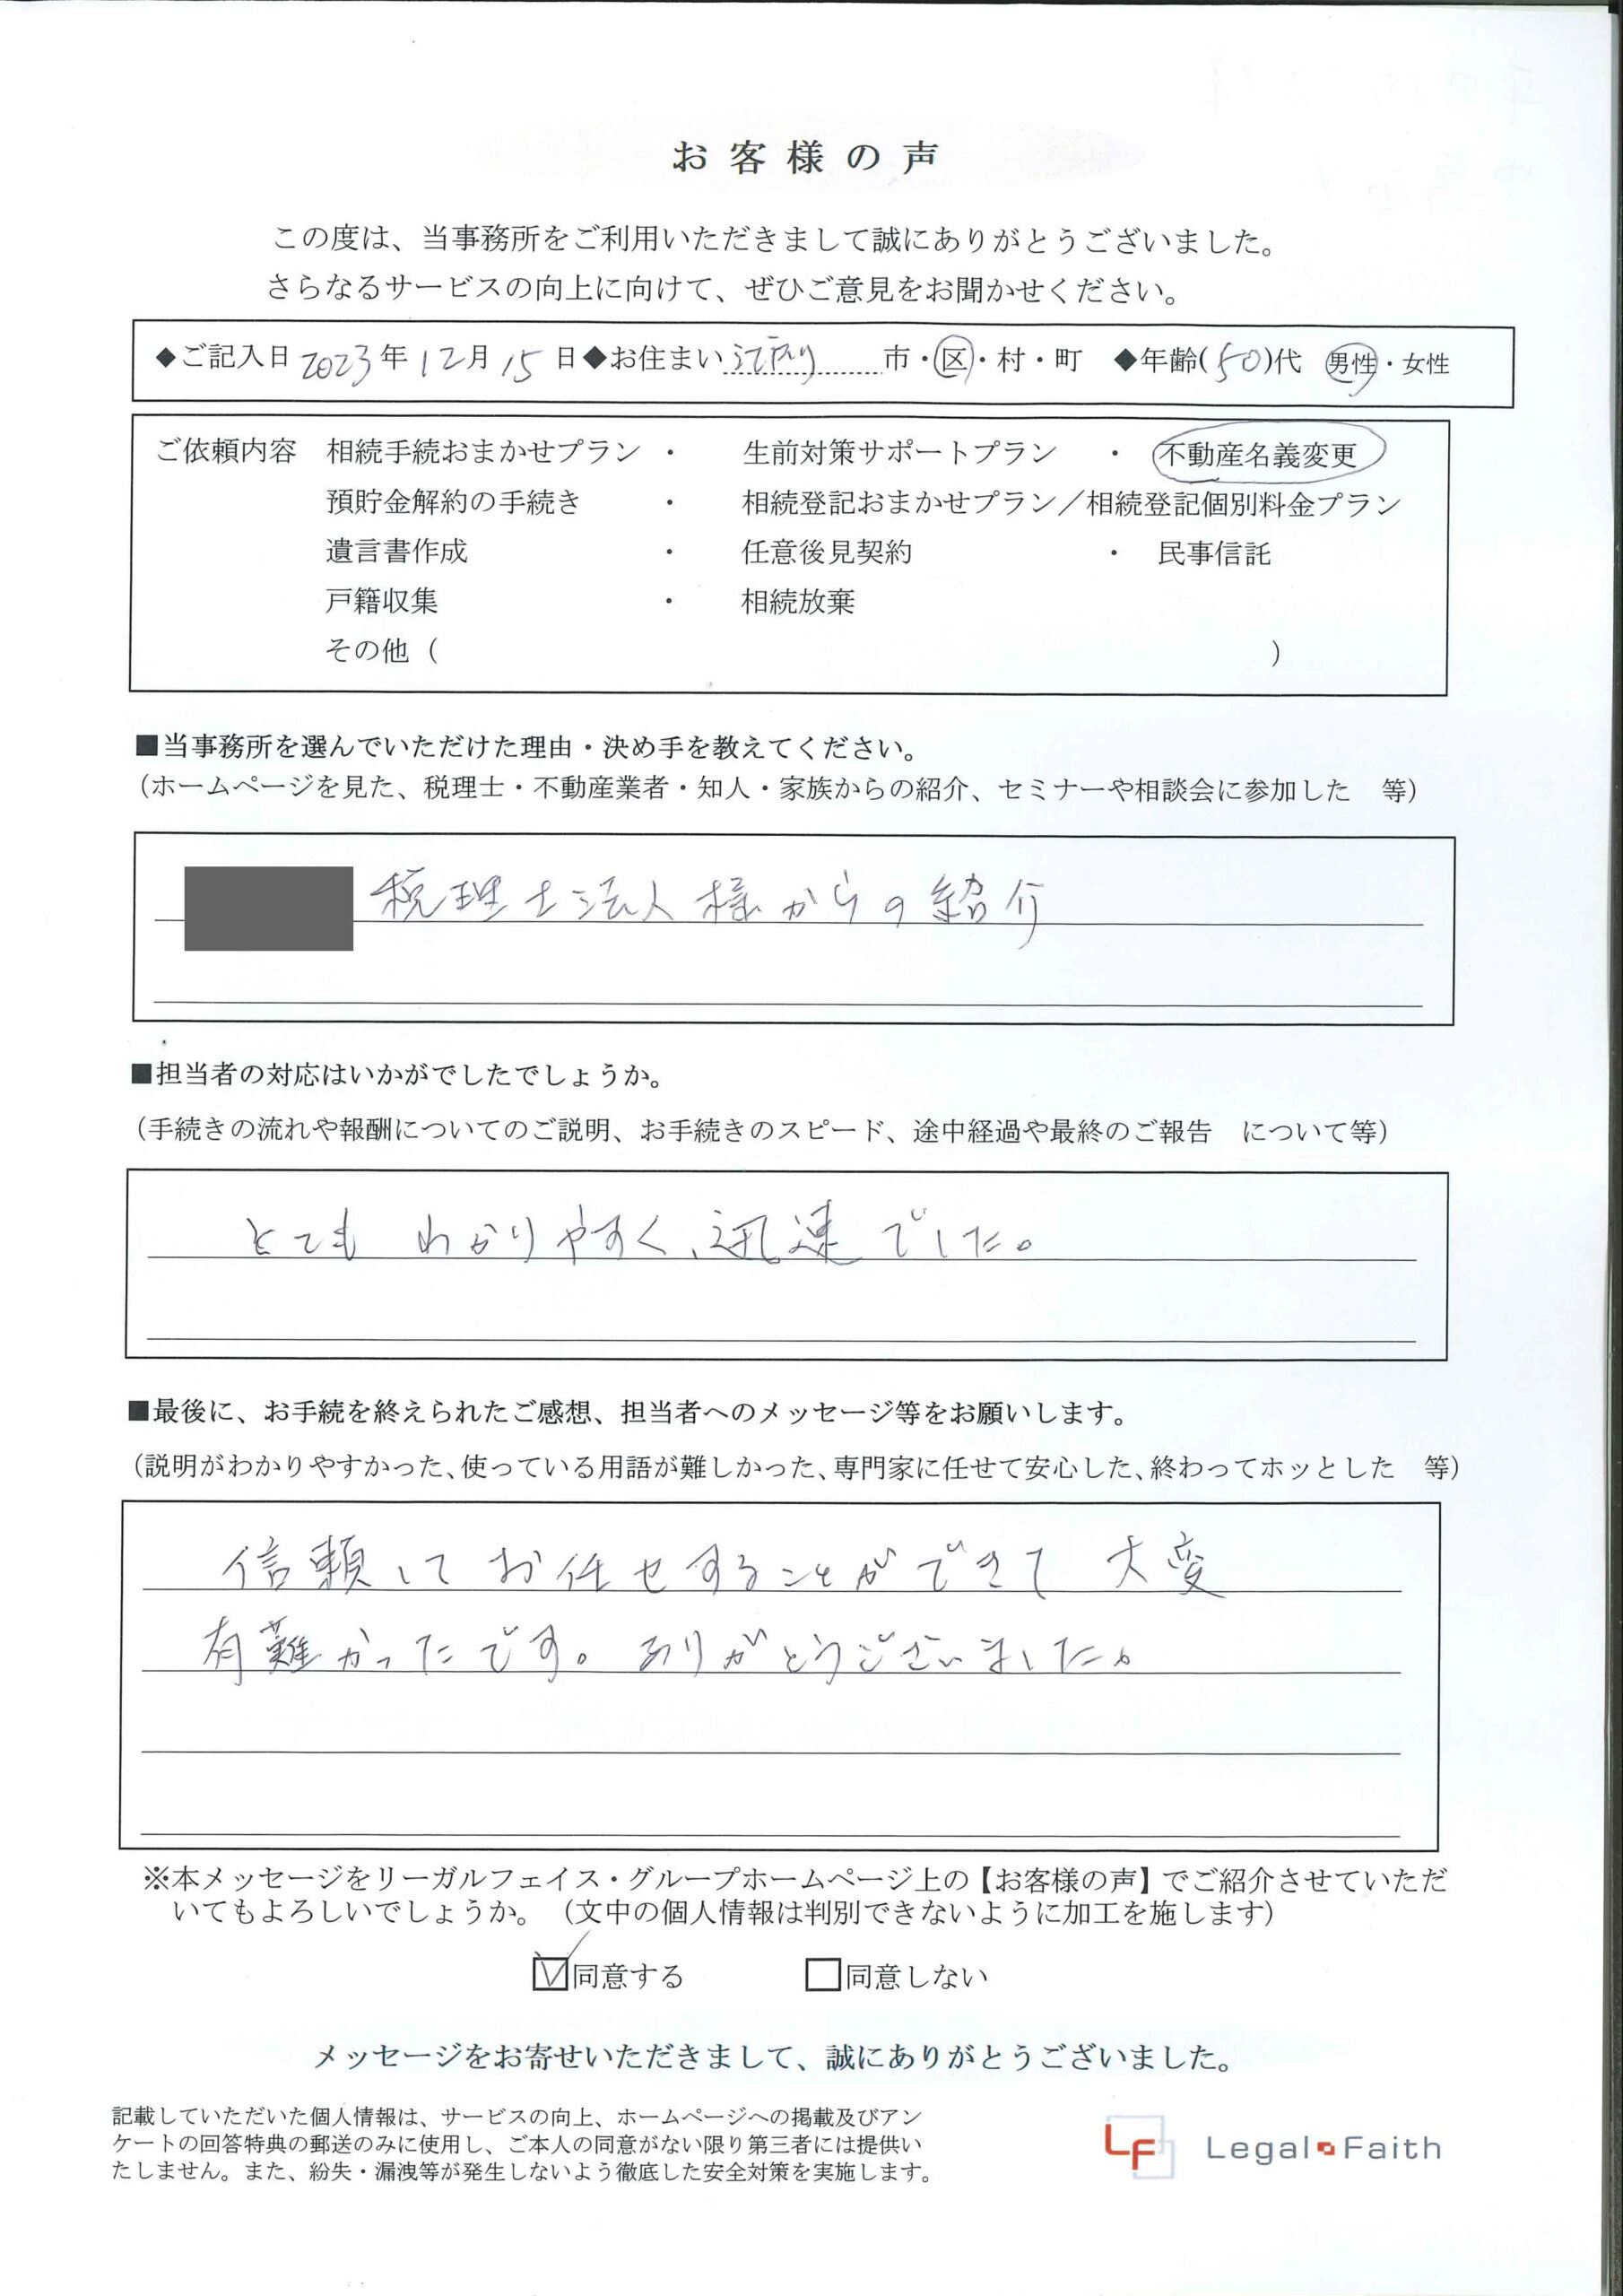 お客様の声
この度は、当事務所をご利用いただきまして誠にありがとうございました。
さらなるサービスの向上に向けて、ぜひご意見をお聞かせください。
◆ご記入日 2023年 12月 15日◆お住まい 江戸川 市・区・村・町 ◆年齢(50)代 男性・女性
ご依頼内容 相続手続おまかせプラン ・ 生前対策サポートプラン ・ 不動産名義変更
預貯金解約の手続き ・ 相続登記おまかせプラン／相続登記個別料金プラン
遺言書作成 ・ 任意後見契約 ・ 民事信託
戸籍収集 ・ 相続放棄
その他（ ）
■当事務所を選んでいただけた理由・決め手を教えてください。
（ホームページを見た、税理士・不動産業者・知人・家族からの紹介、セミナーや相談会に参加した 等）
税理士法人様からの紹介
■担当者の対応はいかがでしたでしょうか。
（手続きの流れや報酬についてのご説明、お手続きのスピード、途中経過や最終のご報告 について等）
とても わかりやすく、迅速でした。
■最後に、お手続を終えられたご感想、担当者へのメッセージ等をお願いします。
（説明がわかりやすかった、使っている用語が難しかった、専門家に任せて安心した、終わってホッとした 等）
信頼してお任せすることができて 大変
有難かったです。ありがとうございました。
※本メッセージをリーガルフェイス・グループホームページ上の【お客様の声】でご紹介させていただ
いてもよろしいでしょうか。（文中の個人情報は判別できないように加工を施します）
☑同意する □同意しない
メッセージをお寄せいただきまして、誠にありがとうございました。
記載していただいた個人情報は、サービスの向上、ホームページへの掲載及びアン
ケートの回答特典の郵送のみに使用し、ご本人の同意がない限り第三者には提供い
たしません。また、紛失・漏洩等が発生しないよう徹底した安全対策を実施します。
LF Legal Faith